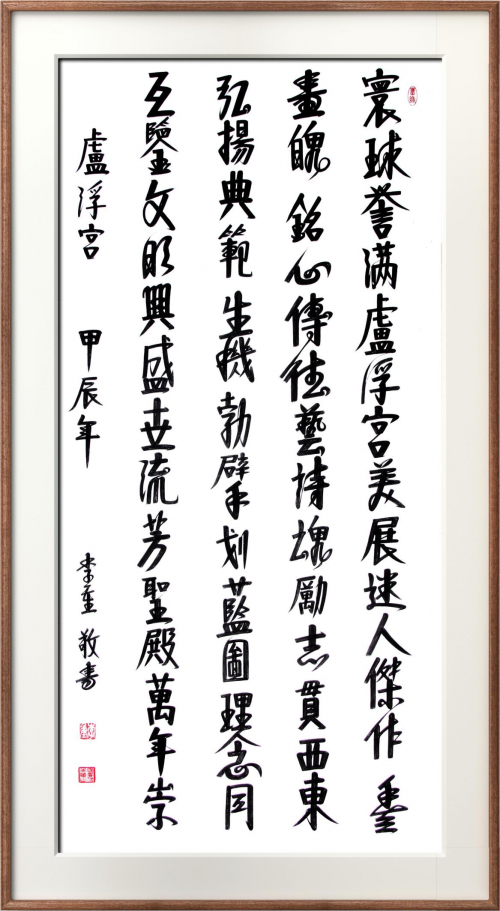 寰球誉满盧浮宫美展迷人傑作豐
畫魄銘心傳往藝詩魂勵志貫西東
弘揚典範生機勃擘划藍圖理念同
互鑒文明興盛世流芳聖殿萬年崇
盧浮宫 甲辰年 李重敬書